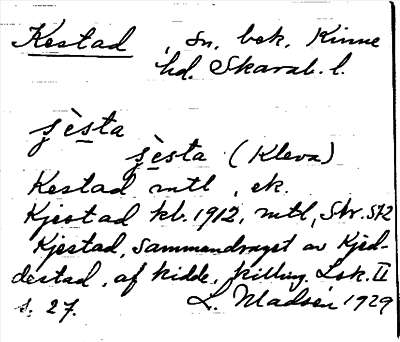 Kestad, sn. bek. Kinne
hd. Skarab. l.
ṣ̀èsta
ṣèsta (Kleva)
Kestad mtl, ek.
Kjestad kb. 1912, mtl, Skr. 572
Kjestad, sammandraget av Kjed-
destad, af kidde, killing. Lsk. II
s. 27. L. Madsén 1929